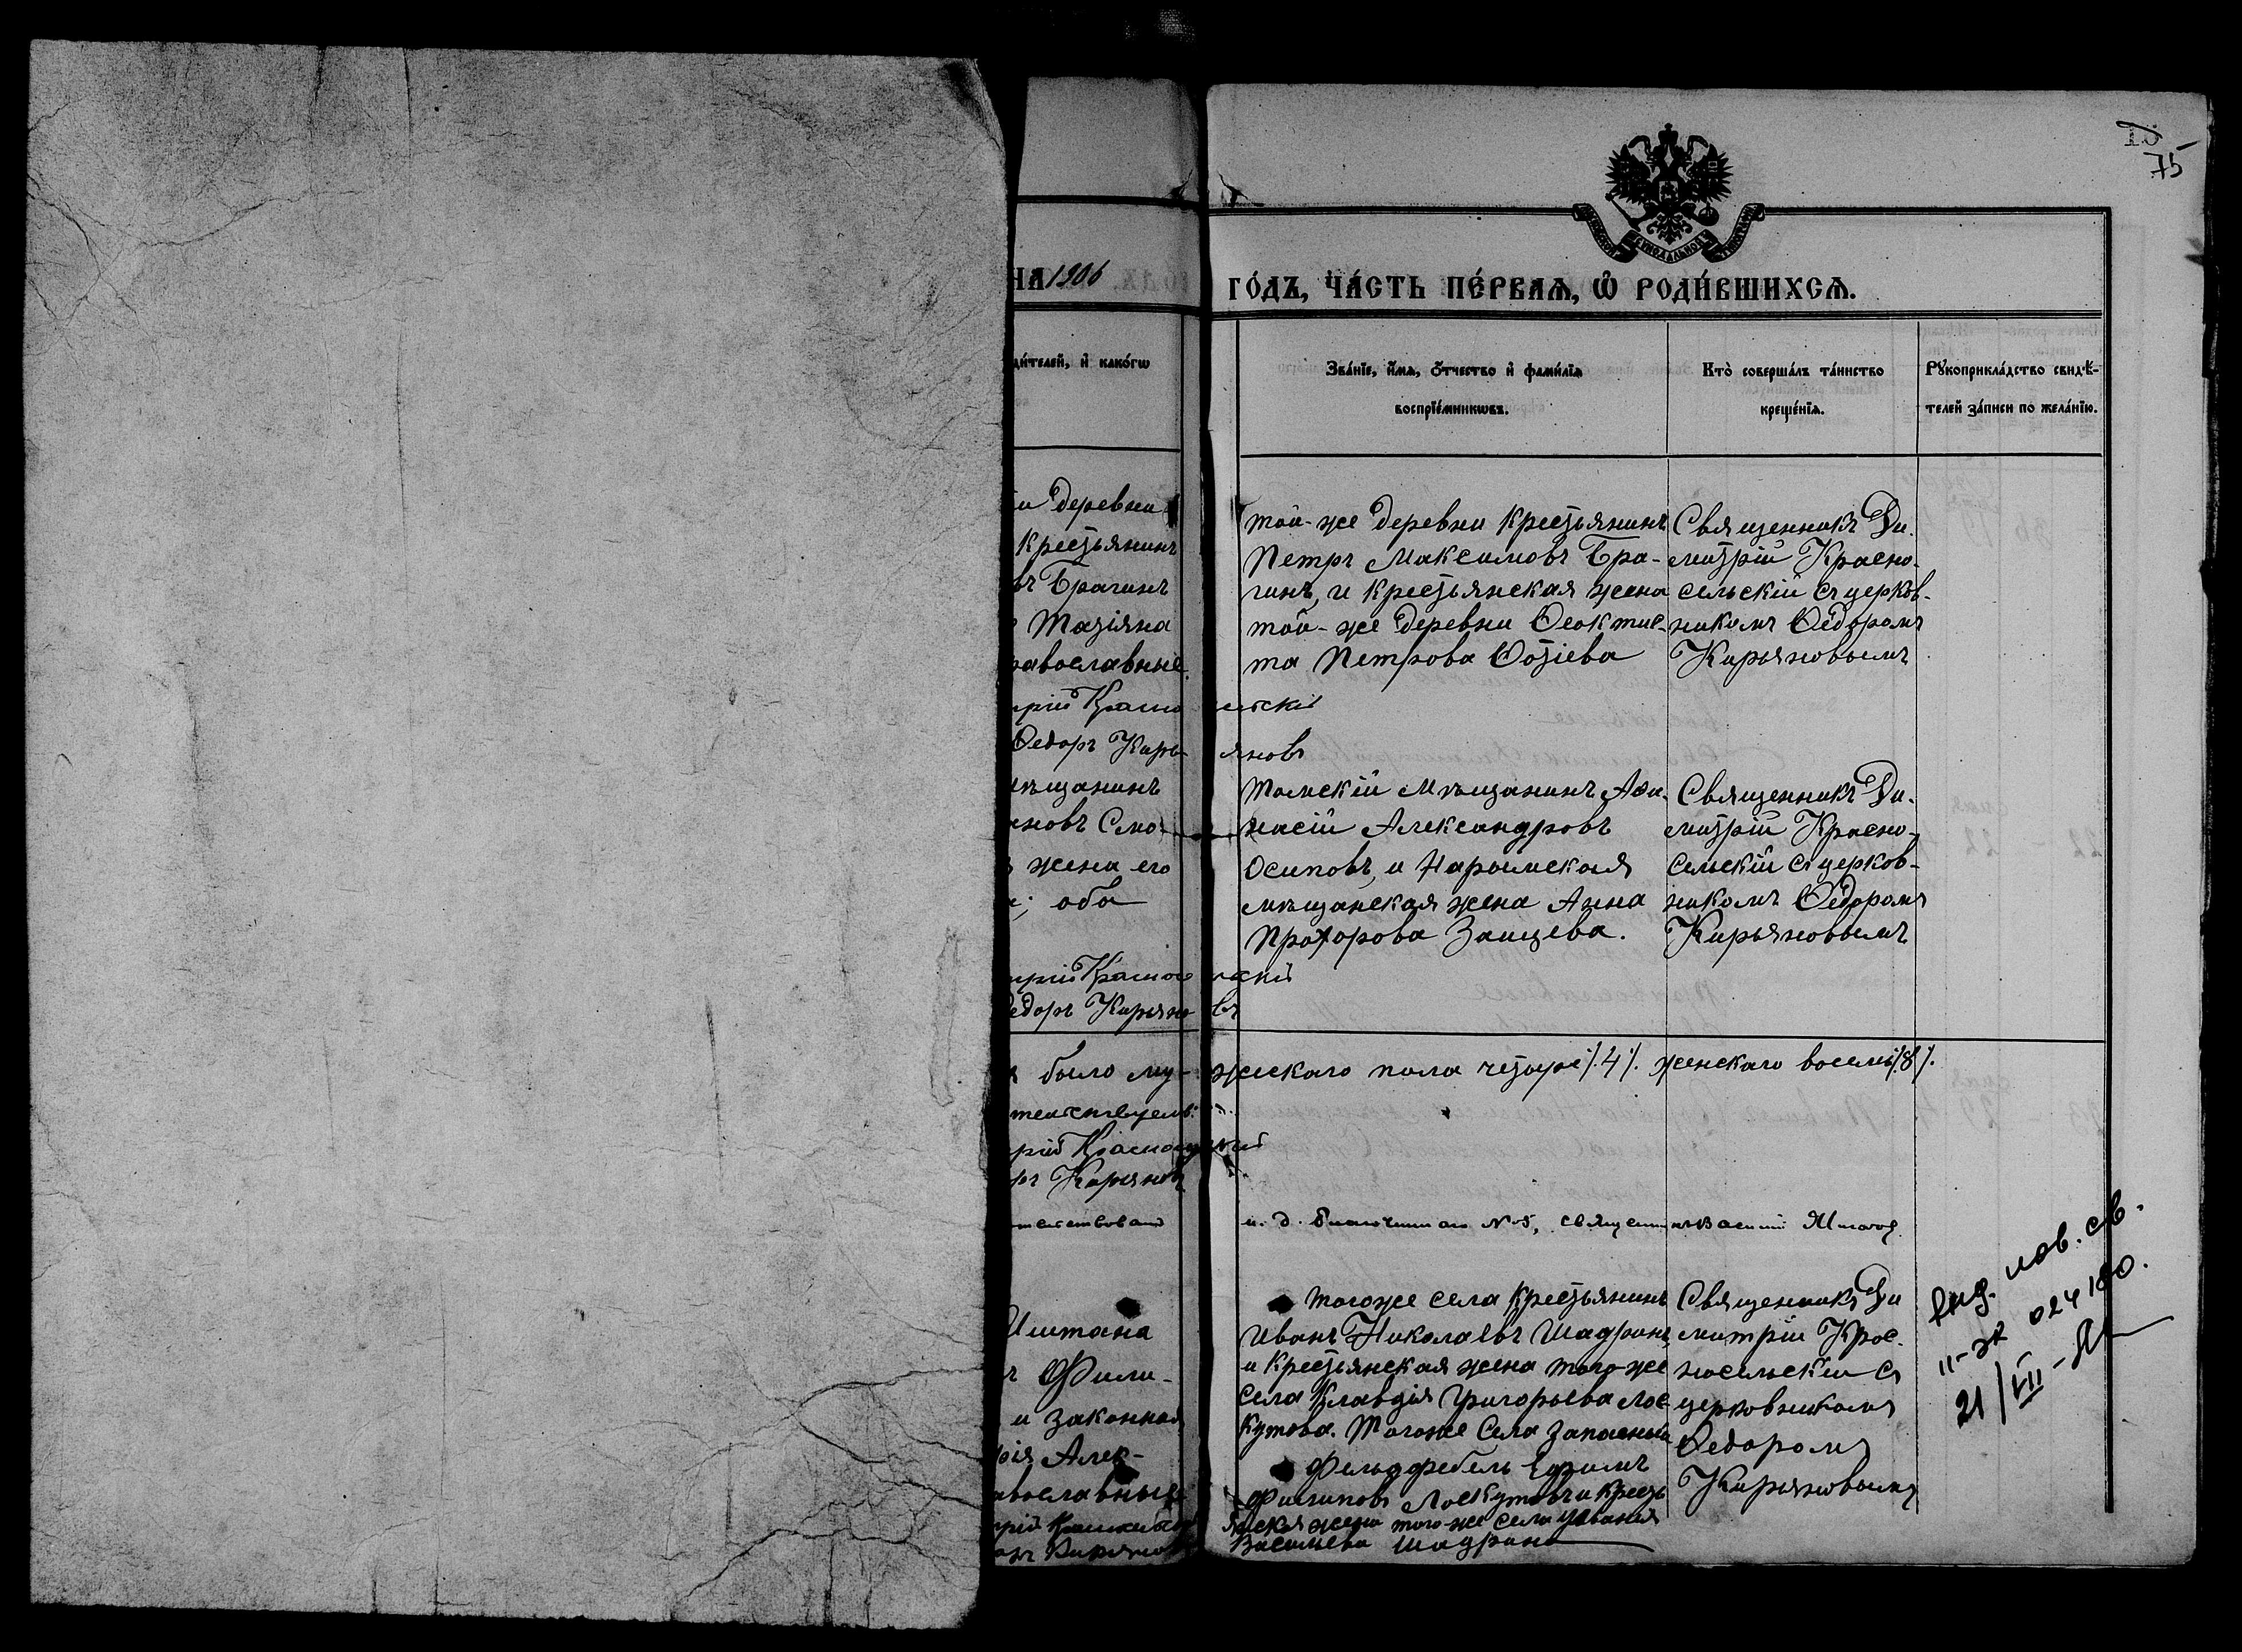 75
НА 1906 ГО́ДЪ, ЧА́СТЬ ПЕ́РВАѦ, Ѡ҆ РОДИ́ВШИХСѦ.
ди́телей, и҆ како́гѡ
Зва́нїе, и҆́мѧ, ѻ҆́тчество и҆ фами́лїѧ
воспрїе́мникѡвъ.
Кто̀ соверша́лъ та́инство
креще́нїѧ.
Рꙋкоприкла́дство свидѣ́-
телей за́писи по жела́нїю.
деревни
Крестьянинъ
въ Брагинъ
Татіяна
равославные.
той-же деревни крестьянинъ
Петръ Максимовъ Бра-
гинъ, и крестьянская жена
той-же деревни Ѳеоктис-
та Петрова Фотіева
Священникъ Ди-
митрій Красно-
сельскій съ церков-
никомъ Ѳедоромъ
Кирьяновымъ
трій Красносельскій
Ѳедоръ Кирьяновъ
мѣщанинъ
жена его
оба
Томскій мѣщанинъ Аѳа-
насій Александровъ
Осиповъ, и Нарымская
мѣщанская жена Анна
Прохорова Заицева.
Священникъ Ди-
митрій Красно-
сельскій съ церков-
никомъ Ѳедоромъ
Кирьяновымъ
трій Красносельскій
едоръ Кирьяновъ
было мужескаго пола четыре ./.4/. женскаго восемь ./.8/.
рій Красносельскій
ръ Кирьяновъ
и. д. благочиннаго №5, священникъ Василій
Иштана
Фили-
и законная
рія Алек-
авославные
тогоже села крестьянинъ
Иванъ Николаевъ Шадринъ,
и крестьянская жена того же
села Клавдія Григорьева Лос-
кутова. Тогоже села запасный
фельдфебель Ефимъ
Филиповъ Лоскутовъ и кресть
янская жена того-же села
Васильева Шадрина
Священникъ Ди
митрій Крас-
носельскій съ
церковникомъ
Ѳедоромъ
Кирьяновымъ
выд. пов. св.
II-ЭК 024180.
21/VII-